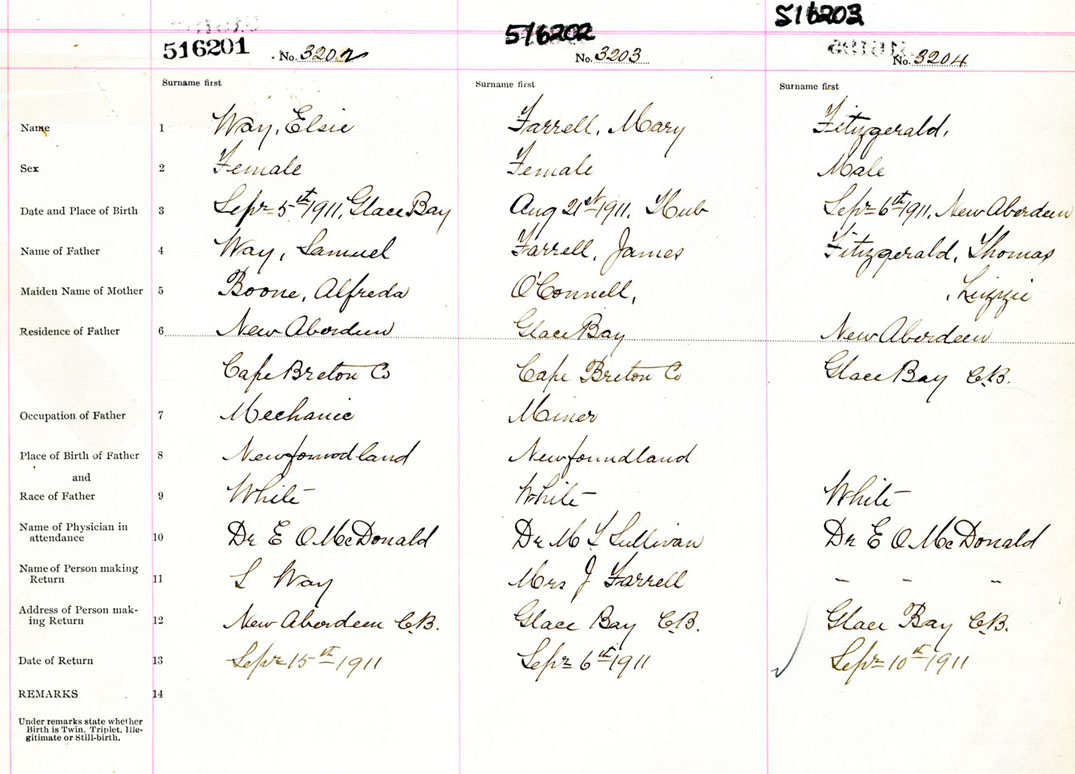 516201 516202 516203
No. 3202 No. 3203 No. 3204
Surname first Surname first Surname first
Name 1 Way, Elsie Farrell, Mary Fitzgerald,
Sex 2 Female Female Male
Date and Place of Birth 3 Sept 5th 1911, Glace Bay Aug 21st 1911, Hub Sept 6th 1911, New Aberdeen
Name of Father 4 Way, Samuel Farrell, James Fitzgerald, Thomas
Maiden Name of Mother 5 Boone, Alfreda O'Connell, , Lizzie
Residence of Father 6 New Aberdeen Glace Bay New Aberdeen
Cape Breton Co Cape Breton Co Glace Bay C.B.
Occupation of Father 7 Mechanic Miner
Place of Birth of Father 8 Newfoundland Newfoundland
and
Race of Father 9 White White White
Name of Physician in
attendance 10 Dr E O McDonald Dr M T Sullivan Dr E O McDonald
Name of Person making
Return 11 S Way Mrs J Farrell - - -
Address of Person mak-
ing Return 12 New Aberdeen C.B. Glace Bay C.B. Glace Bay C.B.
Date of Return 13 Sept 15th 1911 Sept 6th 1911 Sept 10th 1911
REMARKS 14
Under remarks state whether
Birth is Twin, Triplet, Ille-
gitimate or Still-birth.